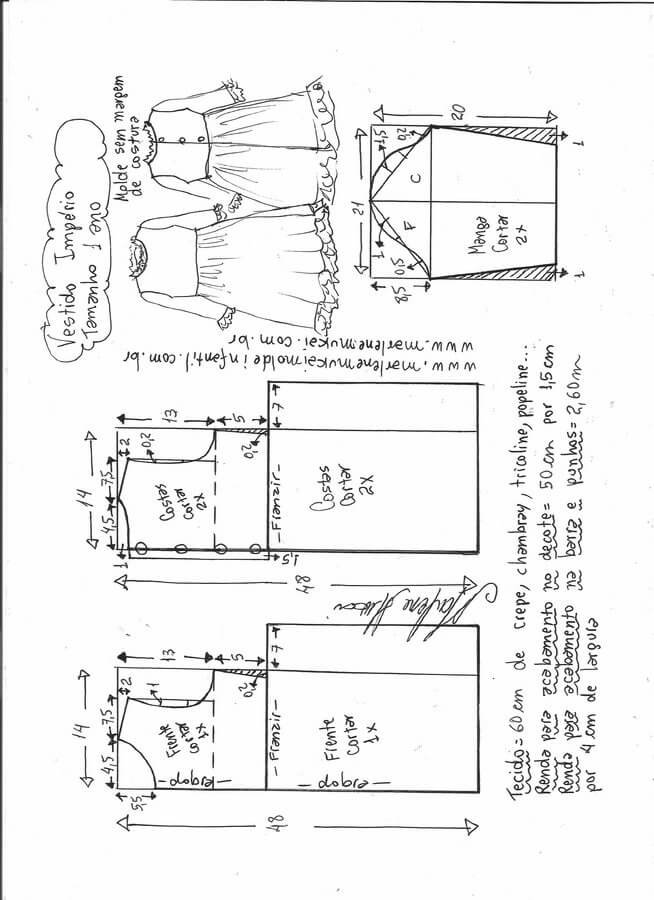 Vestido Império
Tamanho 1 ano
Molde sem margem
de costura
www.marlenemukaimoldeinfantil.com.br
www.marlenemukai.com.br
21
20
1,5
0,2
1
0,5
8,5
F
C
Manga
Cortar
2x
1
1
14
4,5
7,5
2
1
0,2
13
5
0,2
1,5
7
48
Costas
Cortar
2x
-Franzir-
Costas
Cortar
2x
14
4,5
7,5
2
5,5
1
13
5
0,2
7
48
Frente
Cortar
1x
-dobra-
-Franzir-
Frente
Cortar
1x
-dobra-
Tecido = 60cm de crepe, chambray, tricoline, popeline...
Renda para acabamento no decote = 50cm por 1,5cm
Renda para acabamento na barra e punhos = 2,60m
por 4cm de largura